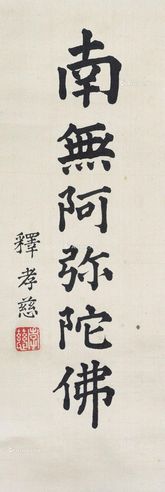 南無阿弥陀佛
釋孝慈